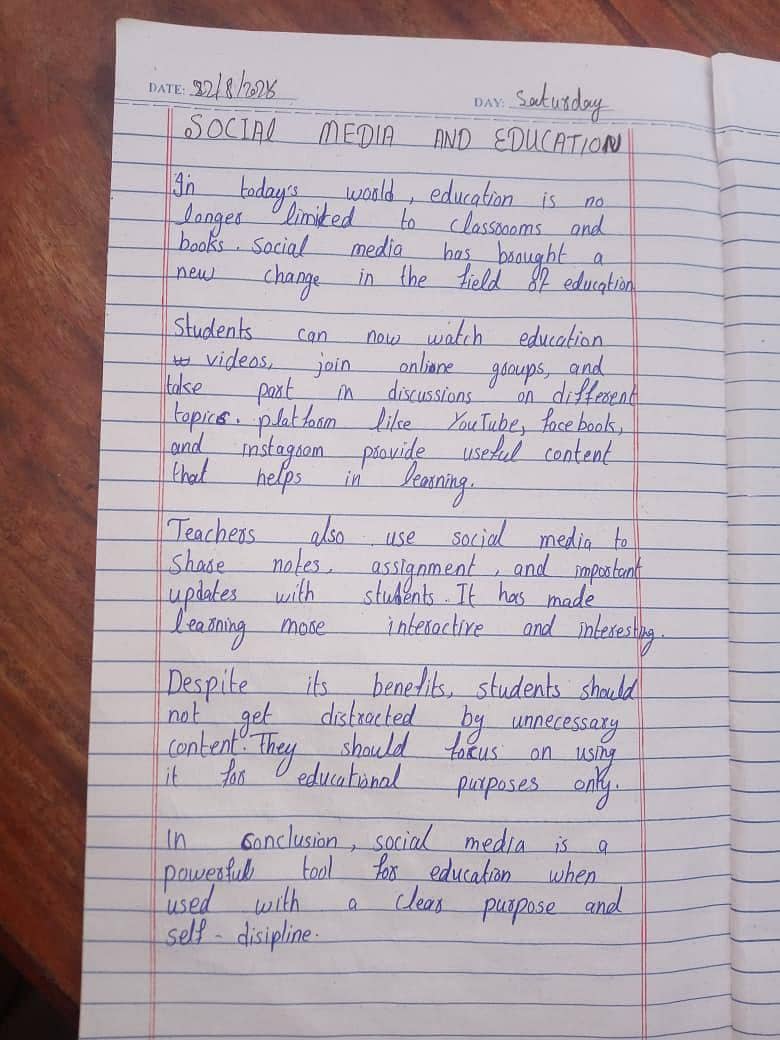 DATE: 22/8/2026
DAY: Saturday
SOCIAL MEDIA AND EDUCATION
In today's world, education is no
longer limited to classrooms and
books. Social media has brought a
new change in the field of education
Students can now watch education
videos, join online groups, and
take part in discussions on different
topics. platform like YouTube, facebook,
and instagram provide useful content
that helps in learning.
Teachers also use social media to
Share notes, assignment, and important
updates with students. It has made
learning more interactive and interesting.
Despite its benefits, students should
not get distracted by unnecessary
content. They should focus on using
it for educational purposes only.
In conclusion, social media is a
powerful tool for education when
used with a clear purpose and
self-disipline.